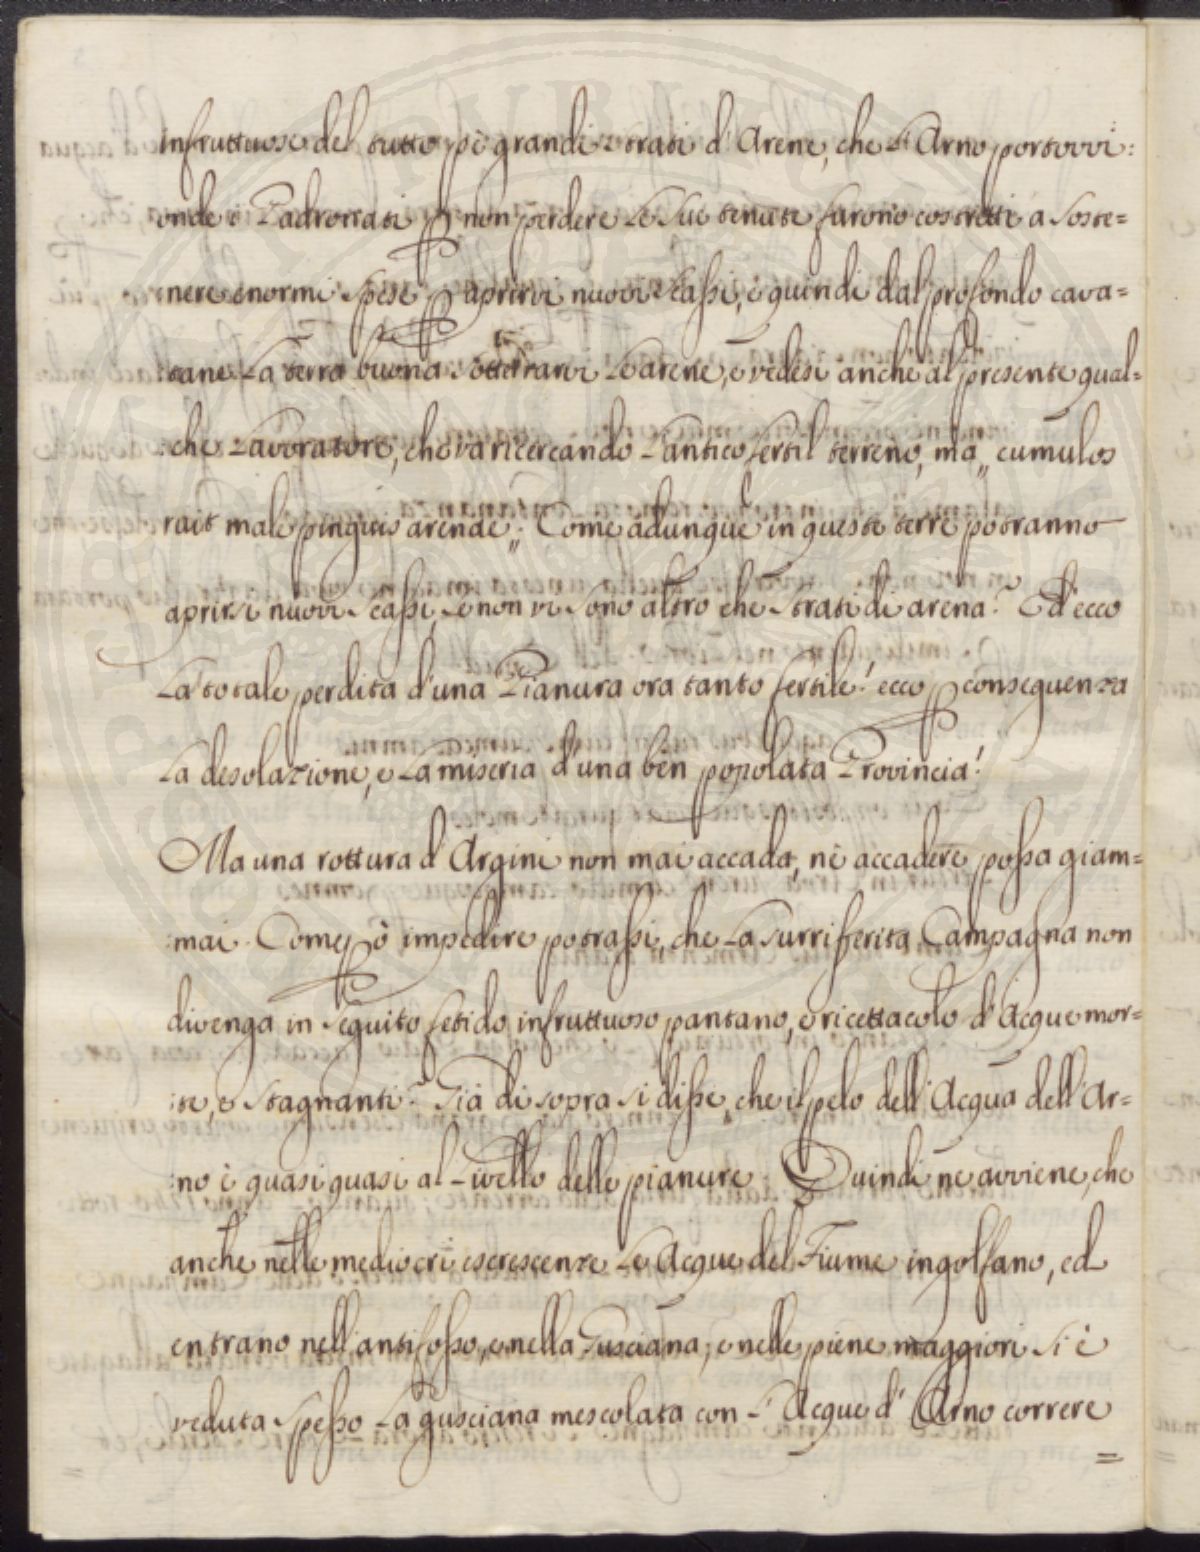 infruttuose del tutto pe' grandi strati d'Arene, che l'Arno portovvi:
onde i Padronati p non perdere le sue tenute furono costretti a soste=
nere enormi spese p aprirvi nuovi scassi, e quindi dal profondo cava=
:tane la terra buona sotterrarvi le arene, e vedesi anche al presente qual=
:che Lavoratore, che va ricercando l'antico fertil terreno, ma „ cumulos
rait male pinguis arenae „. Come adunque in queste terre potranno
aprirsi nuovi scassi, se non vi sono altro che strati di arena? Ed ecco
la totale perdita d'una Pianura ora tanto fertile! ecco p conseguenza
la desolazione, e la miseria d'una ben popolata Provincia!
Ma una rottura d'Argini non mai accada, nè accadere possa giam=
:mai. Come p ò impedire potrassi, che la surriferita Campagna non
divenga in seguito fetido infruttuoso pantano, e ricettacolo d'Acque mor=
:te, e stagnanti? Già di sopra si disse, che il pelo dell'Acqua dell'Ar=
:no è quasi quasi al livello delle pianure. Quindi ne avviene, che
anche nelle mediocri escrescenze le Acque del Fiume ingolfano, ed
entrano nell'antifosso, e nella Gusciana; e nelle piene maggiori si è
veduta spesso la gusciana mescolata con l'Acque d'Arno correre
=